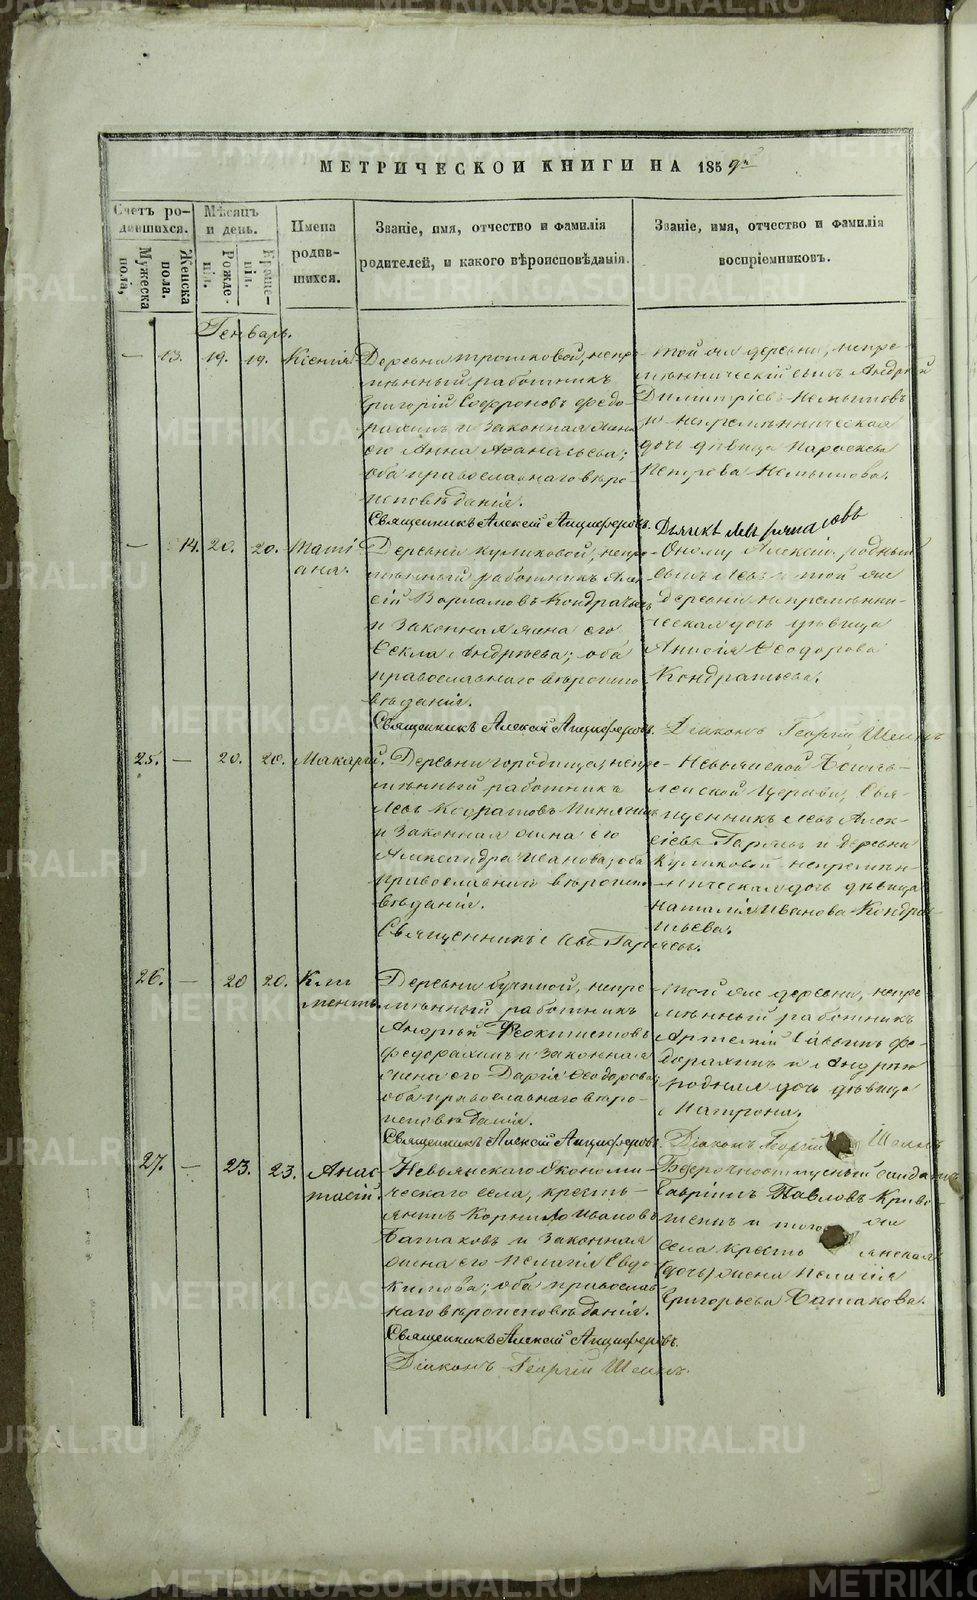 МЕТРИЧЕСКОЙ КНИГИ НА 1859
Счетъ родившихся.
Мѣсяцъ и день.
Имена родившихся.
Званіе, имя, отчество и фамилія
родителей, и какого вѣроисповѣданія.
Званіе, имя, отчество и фамилія
воспріемниковъ.
Мужеска пола,
Женска пола.
Рожденія.
Крещенія.
Генварь.
— 13. 19. 19. Ксенія
Деревни Трошковой, непре-
мѣнный работникъ
Григорій Софроновъ Федо-
рахинъ и законная жена
его Анна Аѳанасьева;
оба православнаго вѣро-
исповѣданія.
Священникъ Алексій Анциферовъ.
Той же деревни, непре-
мѣнническій сынъ Андрей
Димитріевъ Немытовъ
и непремѣнническая
дочь дѣвица Параскева
Петрова Немытова.
Дьячекъ Левъ
— 14. 20. 20. Таті
ана.
Деревни Куликовой, непре-
мѣнный работникъ Але
ѯій Варламовъ Кондратьевъ
и законная жена его
Ѳекла Андреева; оба
православнаго вѣроиспо
вѣданія.
Священникъ Алексій Анциферовъ.
Оному Алексію родный
сынъ Левъ и той же
деревни непремѣнни-
ческая дочь дѣвица
Анисія Ѳеодорова
Кондратьева.
Діаконъ Георгій
25. — 20. 20. Макарій.
Деревни Городища, непре-
мѣнный работникъ
Левъ Кодратовъ
и законная жена его
Александра Иванова; оба
православнаго вѣроиспо
вѣданія.
Священникъ Левъ Гаряевъ.
Невьянской Богояв-
ленской Церкви, Свя-
щенникъ Левъ Алек-
сіевъ Гаряевъ и деревни
Куликовой непремѣн-
ническая дочь дѣвица
Наталія Иванова Кондра-
тьева.
26. — 20 20. Кли
ментъ.
Деревни Бучиной, непре
мѣнный работникъ
Андрей Феоктистовъ
Федорахинъ и законная
жена его Дарія Ѳеодорова
оба православнаго вѣро-
исповѣданія.
Священникъ Алексій Анциферовъ.
Той же деревни, непре
мѣнный работникъ
Артемій Саввинъ Фе-
дорахинъ и Андрею
родная дочь дѣвица
Матрона.
Діаконъ Георгій
27. — 23. 23. Анас
тасій.
Невьянскаго Экономи-
ческаго села, кресть-
янинъ Корнило Ивановъ
Батаковъ и законная
жена его Пелагія Евдо
кимова; оба православ
наго вѣроисповѣданія.
Священникъ Алексій Анциферовъ.
Діаконъ Георгій
Безсрочноотпускный солдатъ
Гавріилъ Павловъ Криво
и того же
села кресть янская
(дочь) жена Пелагія
Григорьева Батакова.
METRIKI.GASO-URAL.RU